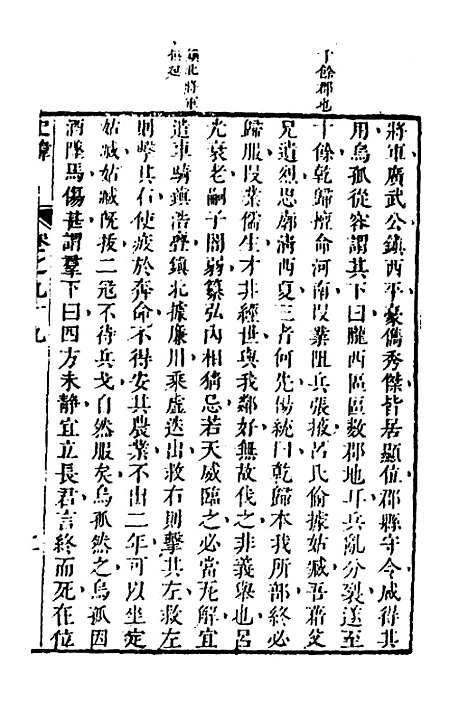 十餘郡也
鎮北將軍
俱延
將軍廣武公鎮西平豪儁秀傑皆居顯位郡縣守令咸得其
用烏孤從容謂其下曰隴西區區數郡地耳兵亂分裂遂至
十餘乾歸擅命河南段業阻兵張掖呂氏偷據姑臧吾藉父
兄遺烈思廓清西夏三者何先楊統曰乾歸本我所部終必
歸服段業儒生才非經世與我鄰好無故伐之非義舉也呂
光衰老嗣子闇弱纂弘內相猜忌若天威臨之必當瓦解宜
遣車騎鎮浩亹鎮北據廉川乘虛迭出救右則擊其左救左
則擊其右使疲於奔命不得安其農業不出二年可以坐定
姑臧姑臧既拔二寇不待兵戈自然服矣烏孤然之烏孤因
酒墜馬傷甚謂羣下曰四方未靜宜立長君言終而死在位
史緯
卷之九十九